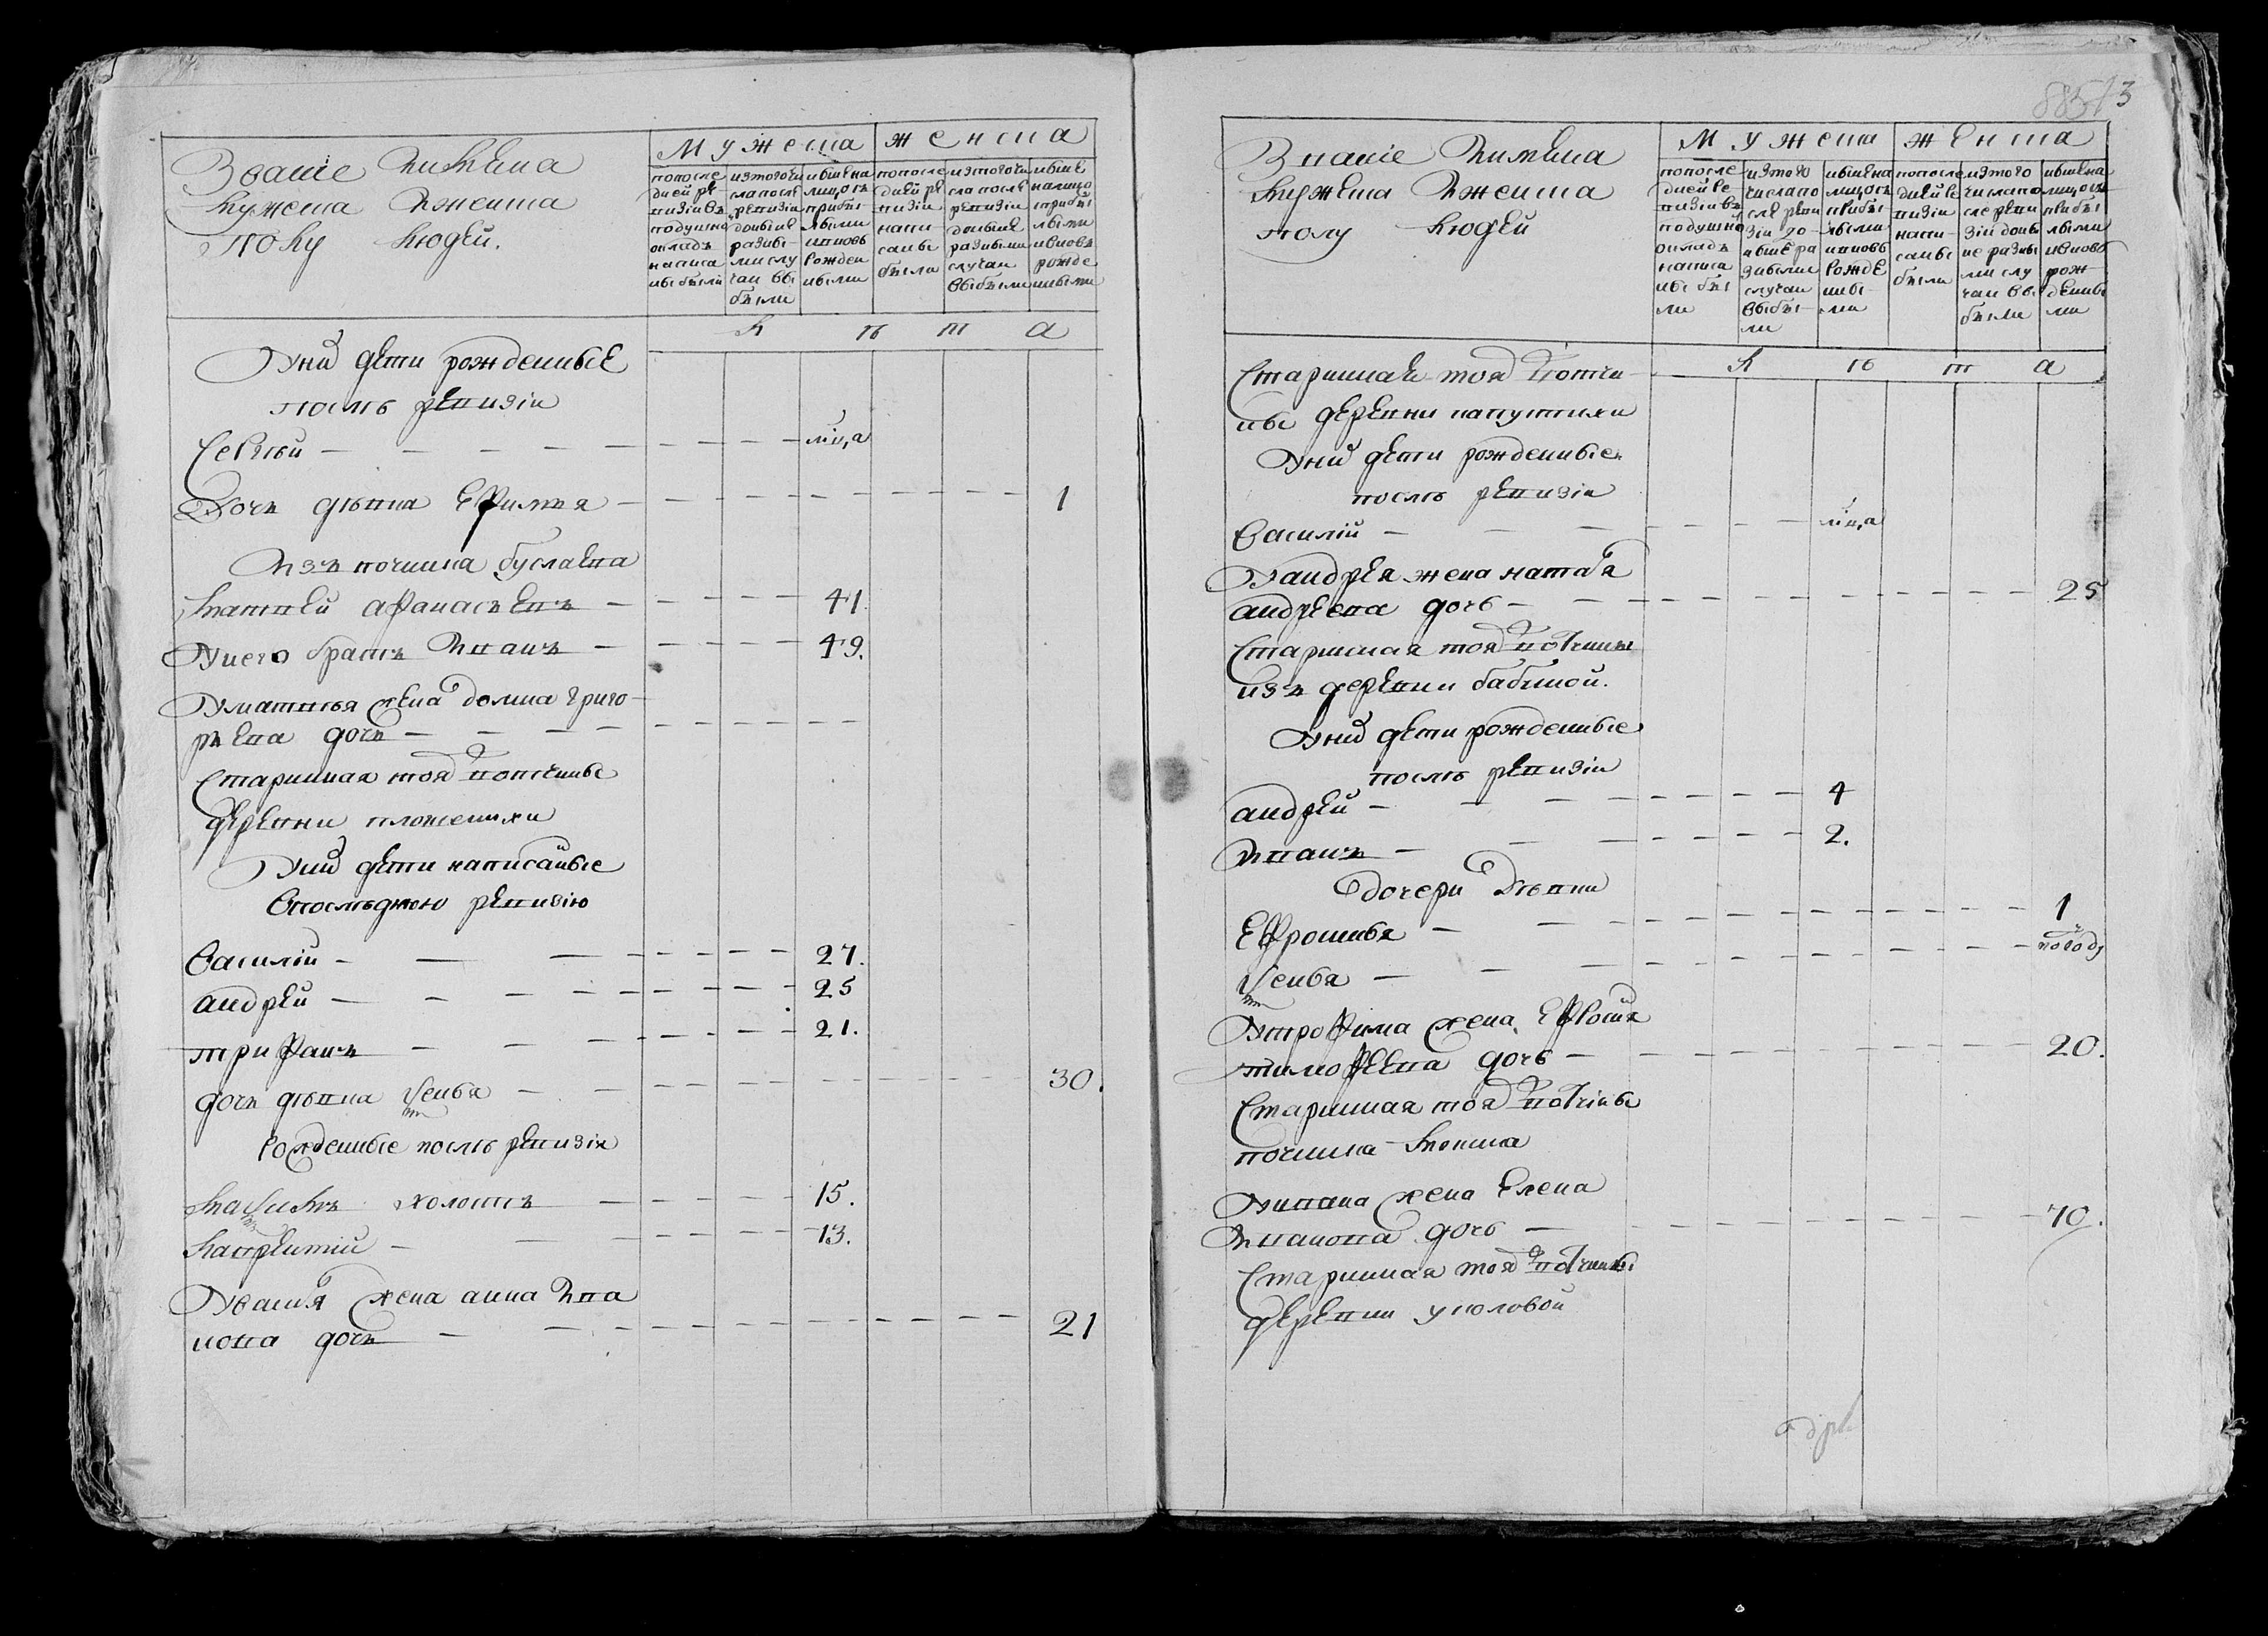 Звание имена
мужеска иженска
полу людей.
Мужеска
женска
попосле
дней ре
визиивъ
подушно
окладъ
написа
ны были
изтогочи
сла после
ревизии
доныне
разны-
ми слу
чаи вы
были
ныне на
лицосъ
прибы
лыми
ивновь
рожден
ными
попосле
дней ре
визии
напи
саны
были
изтогочи
сла после
ревизии
доныне
разными
случаи
выбыли
ныне
налицо
сприбы
лыми
ивновь
рожде
нными
лѣта
Уних дети рожденные
послѣ ревизіи
Сергѣй — месяца
Дочь дѣвка Ефимья — 1
Изъ починка буслаева
Матвей афанасьевъ — 41
Унего братъ Иванъ — 49.
Уматвѣя жена домна григо
рьева дочь —
Старинная тояж вотчины
деревни
Уних дети написанные
впоследнюю ревизію
Василій — 27.
андрей — 25
трифанъ — 21.
дочь дѣвка ѯенья — 30.
Рожденные послѣ ревизіи
Маѯимъ холостъ — 15.
лаврентий — 13.
Увасилья жена анна Ива
нова дочь — 21
885 13
Звание имена
мужеска иженска
полу людей
Мужеска
женска
попосле
дней ре
визиивъ
подушно
окладъ
написа
ны бы
ли
изтого
числа по
сле реви
зіи до-
ныне ра
зными
случаи
выбы-
ли
ныне на
лицосъ
прибы-
лыми
ивновь
рожде
нны-
ми
попосле
дней ре
визіи
напи-
саны
были
изтого
числапо
сле реви
зіи доны
не разны
ми слу
чаи вы
были
ныне на
лицосъ
прибы
лыми
ивновь
рож-
денны
ми
лѣта
Стариннаи тояж вотчи
ны деревни папутихи
Уних дети рожденные
послѣ ревизіи
Василій — месяца
Уандрея жена наталья
андреева дочь — 25
Старинная тояж вотчины
изъ деревни бабиной.
Уних дети рожденные
послѣ ревизіи
андрей — 4
Иванъ — 2.
дочери дѣвки
Ефросинья — 1
ѯенья — полгоду
Утрофима жена Ефросинья
тимофеева дочь — 20.
Старинная тояж вотчины
починка
Уивана жена Елена
Иванова дочь — 70.
Старинная тояж вотчины
деревни